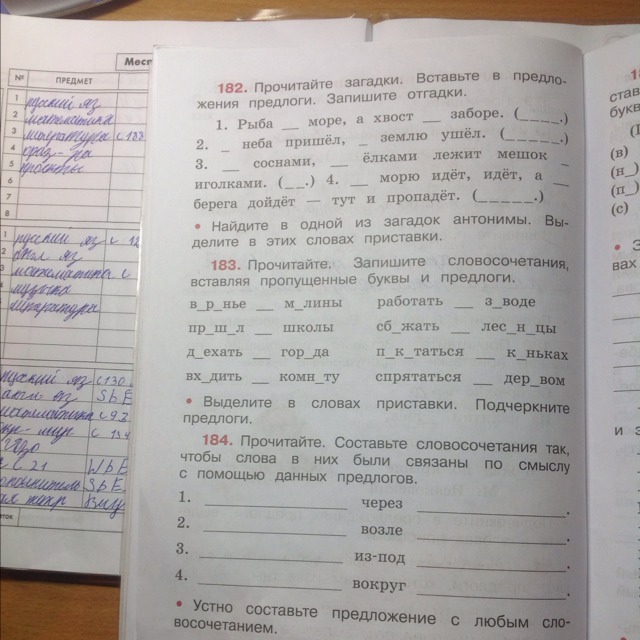 Мест
№ ПРЕДМЕТ
1 русский яз
2 математика
3 литература с 122
4
5
6
7
8
1 русский яз с 12
2 англ яз
3 математика с
4 музыка
5 литература
русский яз с 130
англ яз
математика с 92
окр. мир с 134
с 21
182. Прочитайте загадки. Вставьте в предло-
жения предлоги. Запишите отгадки.
1. Рыба _ море, а хвост _ заборе. (_ _ _ _.)
2. _ неба пришёл, _ землю ушёл. (_ _ _ _ _.)
3. _ соснами, _ ёлками лежит мешок _
иголками. (_ _.) 4. _ морю идёт, идёт, а _
берега дойдёт — тут и пропадёт. (_ _ _ _ _.)
• Найдите в одной из загадок антонимы. Вы-
делите в этих словах приставки.
183. Прочитайте. Запишите словосочетания,
вставляя пропущенные буквы и предлоги.
в_р_нье _ м_лины работать _ з_воде
пр_ш_л _ школы сб_жать _ лес_н_цы
д_ехать _ гор_да п_к_таться _ к_ньках
вх_дить _ комн_ту спрятаться _ дер_вом
• Выделите в словах приставки. Подчеркните
предлоги.
184. Прочитайте. Составьте словосочетания так,
чтобы слова в них были связаны по смыслу
с помощью данных предлогов.
1. _ через _.
2. _ возле _.
3. _ из-под _.
4. _ вокруг _.
• Устно составьте предложение с любым сло-
восочетанием.
18
став
букв
(в)
(н_)
(п_)
(с)
• З
вах
и з